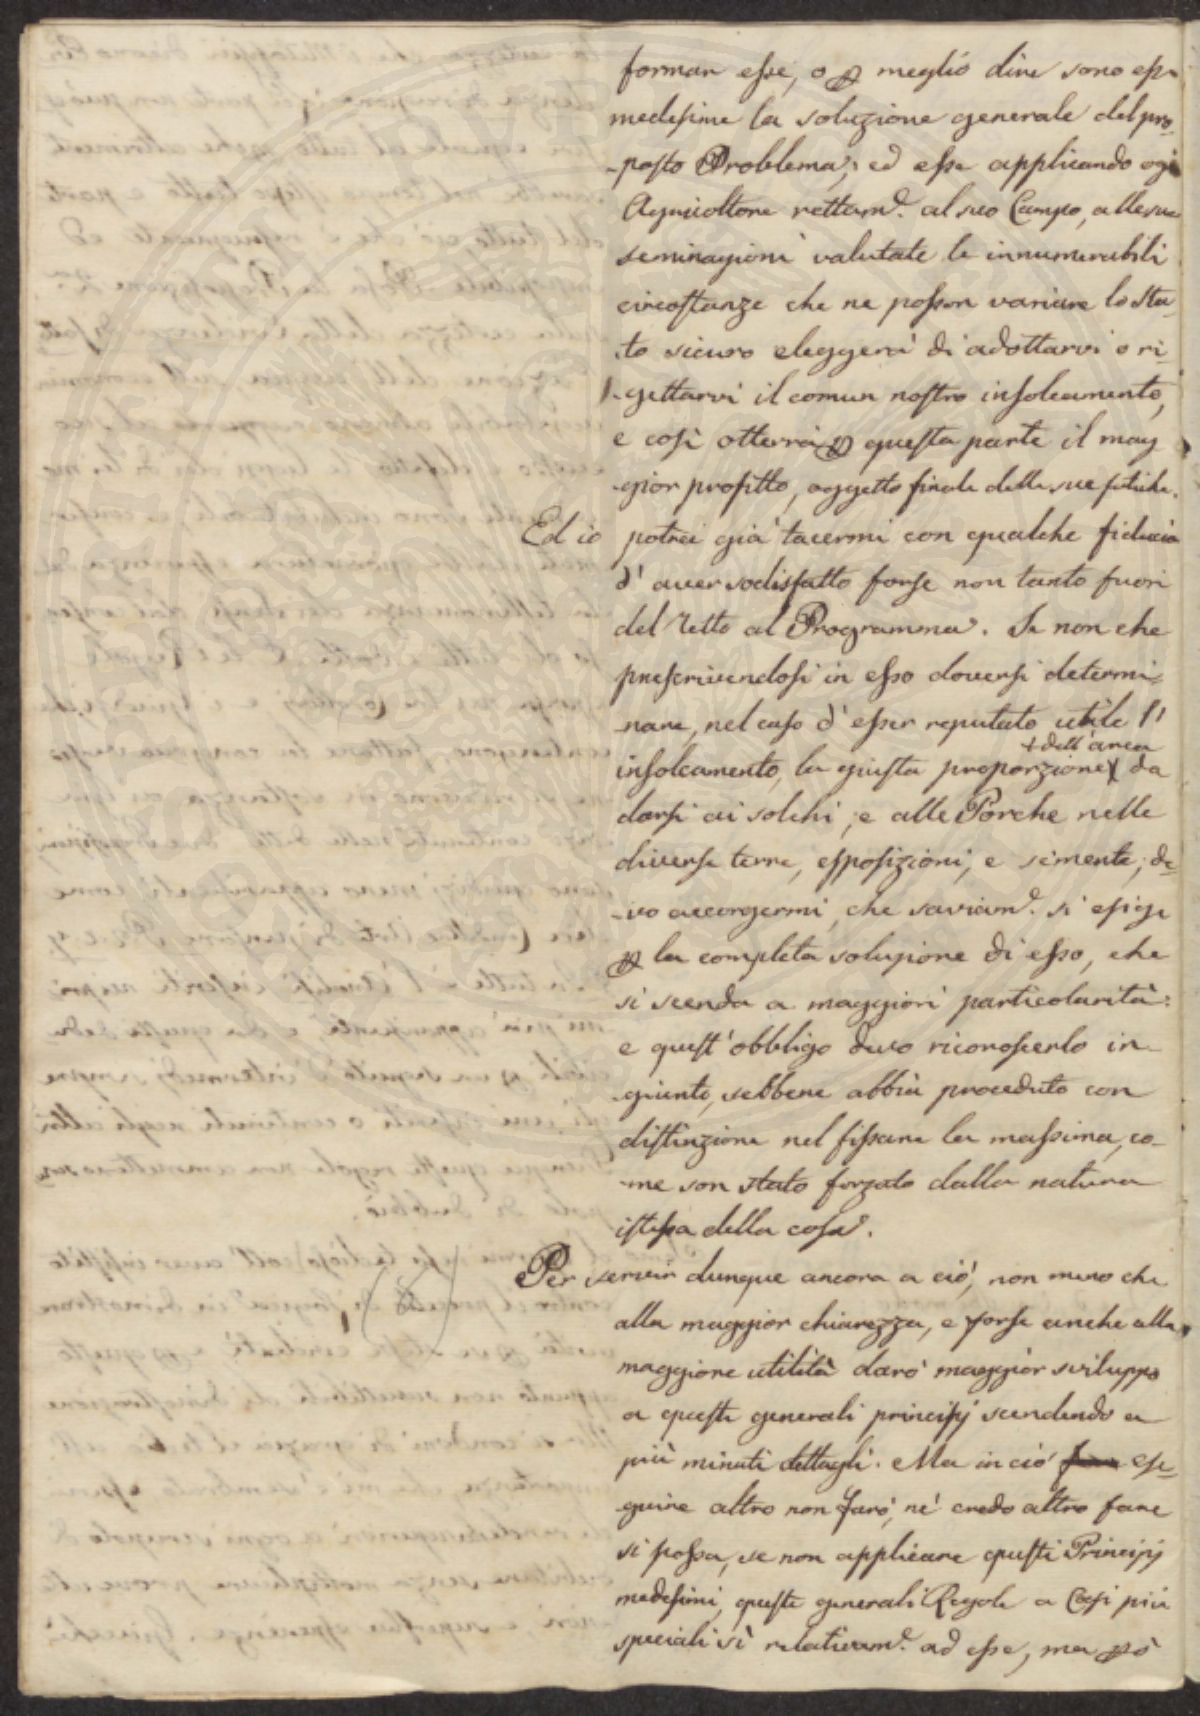 forman esse, o p meglio dire sono esse
medesime la soluzione generale del pro-
-posto Problema; ed esse applicando ogni
Agricoltore rettam.e al suo Campo, alle sue
seminagioni valutate le innumerabili
circostanze che ne posson variare lo sta-
to sicuro eleggerà di adottarvi o ri-
-gettarvi il comun nostro insolcamento,
e così otterrà p questa parte il mag
-gior profitto, oggetto finale delle sue fatiche.
Ed io potrei già tacermi con qualche fiducia
d'aver sodisfatto forse non tanto fuori
del retto al Programma. Se non che
prescrivendosi in esso doversi determi-
nare, nel caso d'esser reputato utile l'
+ dell'area
insolcamento, la giusta proporzione da
darsi ai solchi, e alle Porche nelle
diverse terre, esposizioni, e sementa, de-
-vo accorgermi, che saviam.e si esige
p la completa soluzione di esso, che
si scenda a maggiori particolarità:
e quest'obbligo devo riconoscerlo in-
giunto, sebbene abbia proceduto con
distinzione nel fissare la massima, co-
-me son stato forzato dalla natura
istessa della cosa.
Per servir dunque ancora a ciò, non meno che
alla maggior chiarezza, e forse anche alla
maggiore utilità darò maggior sviluppo
a questi generali principj scendendo a
più minuti dettagli. Ma in ciò ese-
guire altro non farò, nè credo altro fare
si possa, se non applicare questi Principj
medesimi, queste generali Regole a Casi più
speciali sì relativam.e ad esse, ma pò